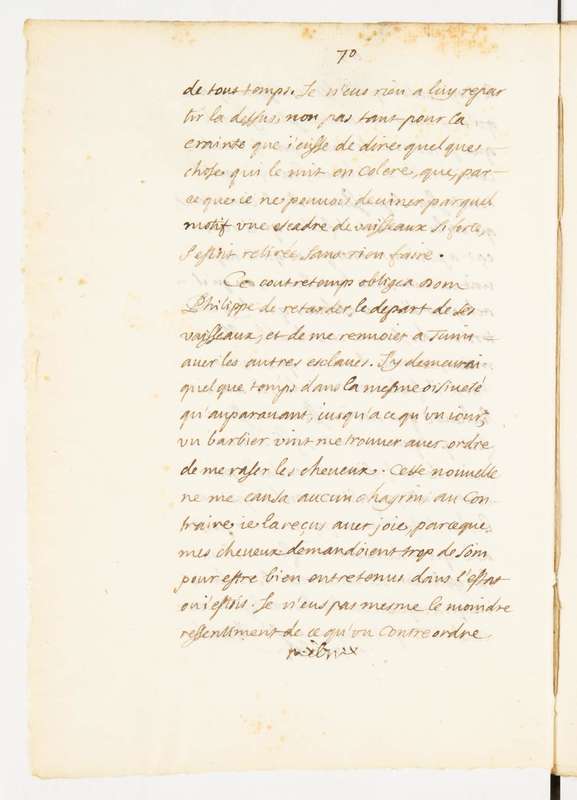 70
de tout temps. Je n'eus rien a luy repar
tir la dessus, non pas tant pour la
crainte que i'eusse de dire quelques
chose qui le mit en colere, que, par
ce que ie ne pouvois deviner par quel
motif vne escadre de vaisseaux si forte,
s'estoit retirée sans rien faire.
Ce contretemps obligea Dom
Philippe de retarder le depart de ses
vaisseaux, et de me renvoier a Tunis
avec les autres esclaves. J'y demeurai
quelque temps dans la mesme oisiueté
qu'auparavant, iusqu'a ce qu'vn iour
vn barbier vint me trouver avec ordre
de me raser les cheveux. Cette nouvelle
ne me causa aucun chagrin, au con
traire ie la reçus avec joie, parceque
mes cheveux demandoient trop de soin
pour estre bien entretenus dans l'estat
ou i'estois. Je n'eus pas mesme le moindre
ressentiment de ce qu'vn contreordre